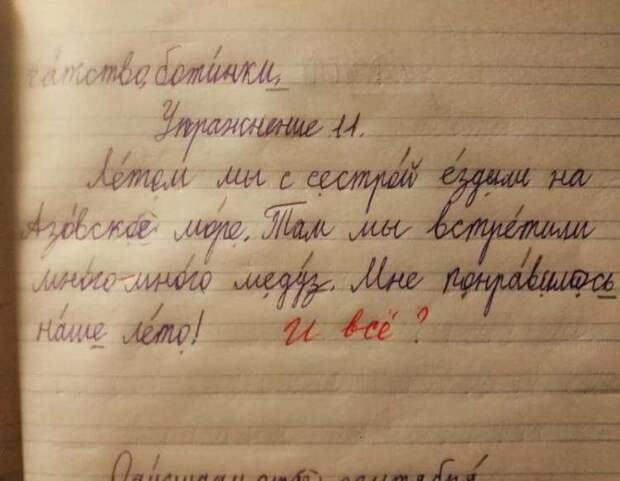 ботинки.
Упражнение 11.
Летом мы с сестрой ездили на
Азовское море. Там мы встретили
много-много медуз. Мне понравилось
наше лето! И всё?